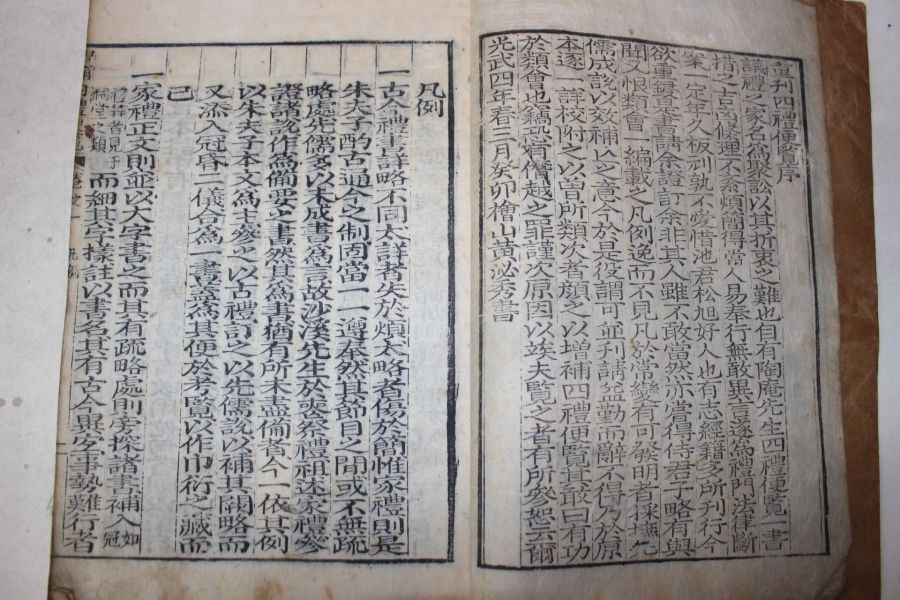 重刊四禮便覽序
議禮之家名爲聚訟以其折衷之難也自有陶庵先生四禮便覽一書
措之吉凶條理不紊煩簡得當人易奉行無敢異言遂爲禮門法律斷
案一定年久板刓孰不愛惜池君松旭好人也有志經籍多所刊行今
欲重鋟是書請余證訂余非其人雖不敢當然亦嘗得侍君子略有與
聞又恨類會 編載之凡例逸而不見凡於常變有可發明者採撫先
儒成說以效補 之意今於是役謂可並刊請益勤而辭不得乃於原
本逐一詳校附之以曽所類次者顔之以增補四禮便覽豈敢曰有功
於類會也竊恐有僭越之罪謹次原因以竢夫覽之者有所參恕云爾
光武四年春三月癸卯檜山黃泌秀書
凡例
一古今禮書詳略不同太詳者失於煩太略者傷於簡惟家禮則是
朱夫子酌古通今之制固當一一遵奉然其節目之間或不無疏
略處先儒多以未成書爲言故沙溪先生於喪祭禮祖述家禮參
證諸說作爲備要之書然其爲書猶有所未盡備者今一依其例
以朱夫子本文爲主參之以古禮訂之以先儒說以補其闕略而
又添入冠昏二儀合爲一書蓋爲其便於考覽以作巾衍之藏而
已
一家禮正文則並以大字書之而其有疏略處則旁探諸書補入如冠
禮筓者見于祠堂之類而細其字採註以書名其有古今異宜事勢難行者